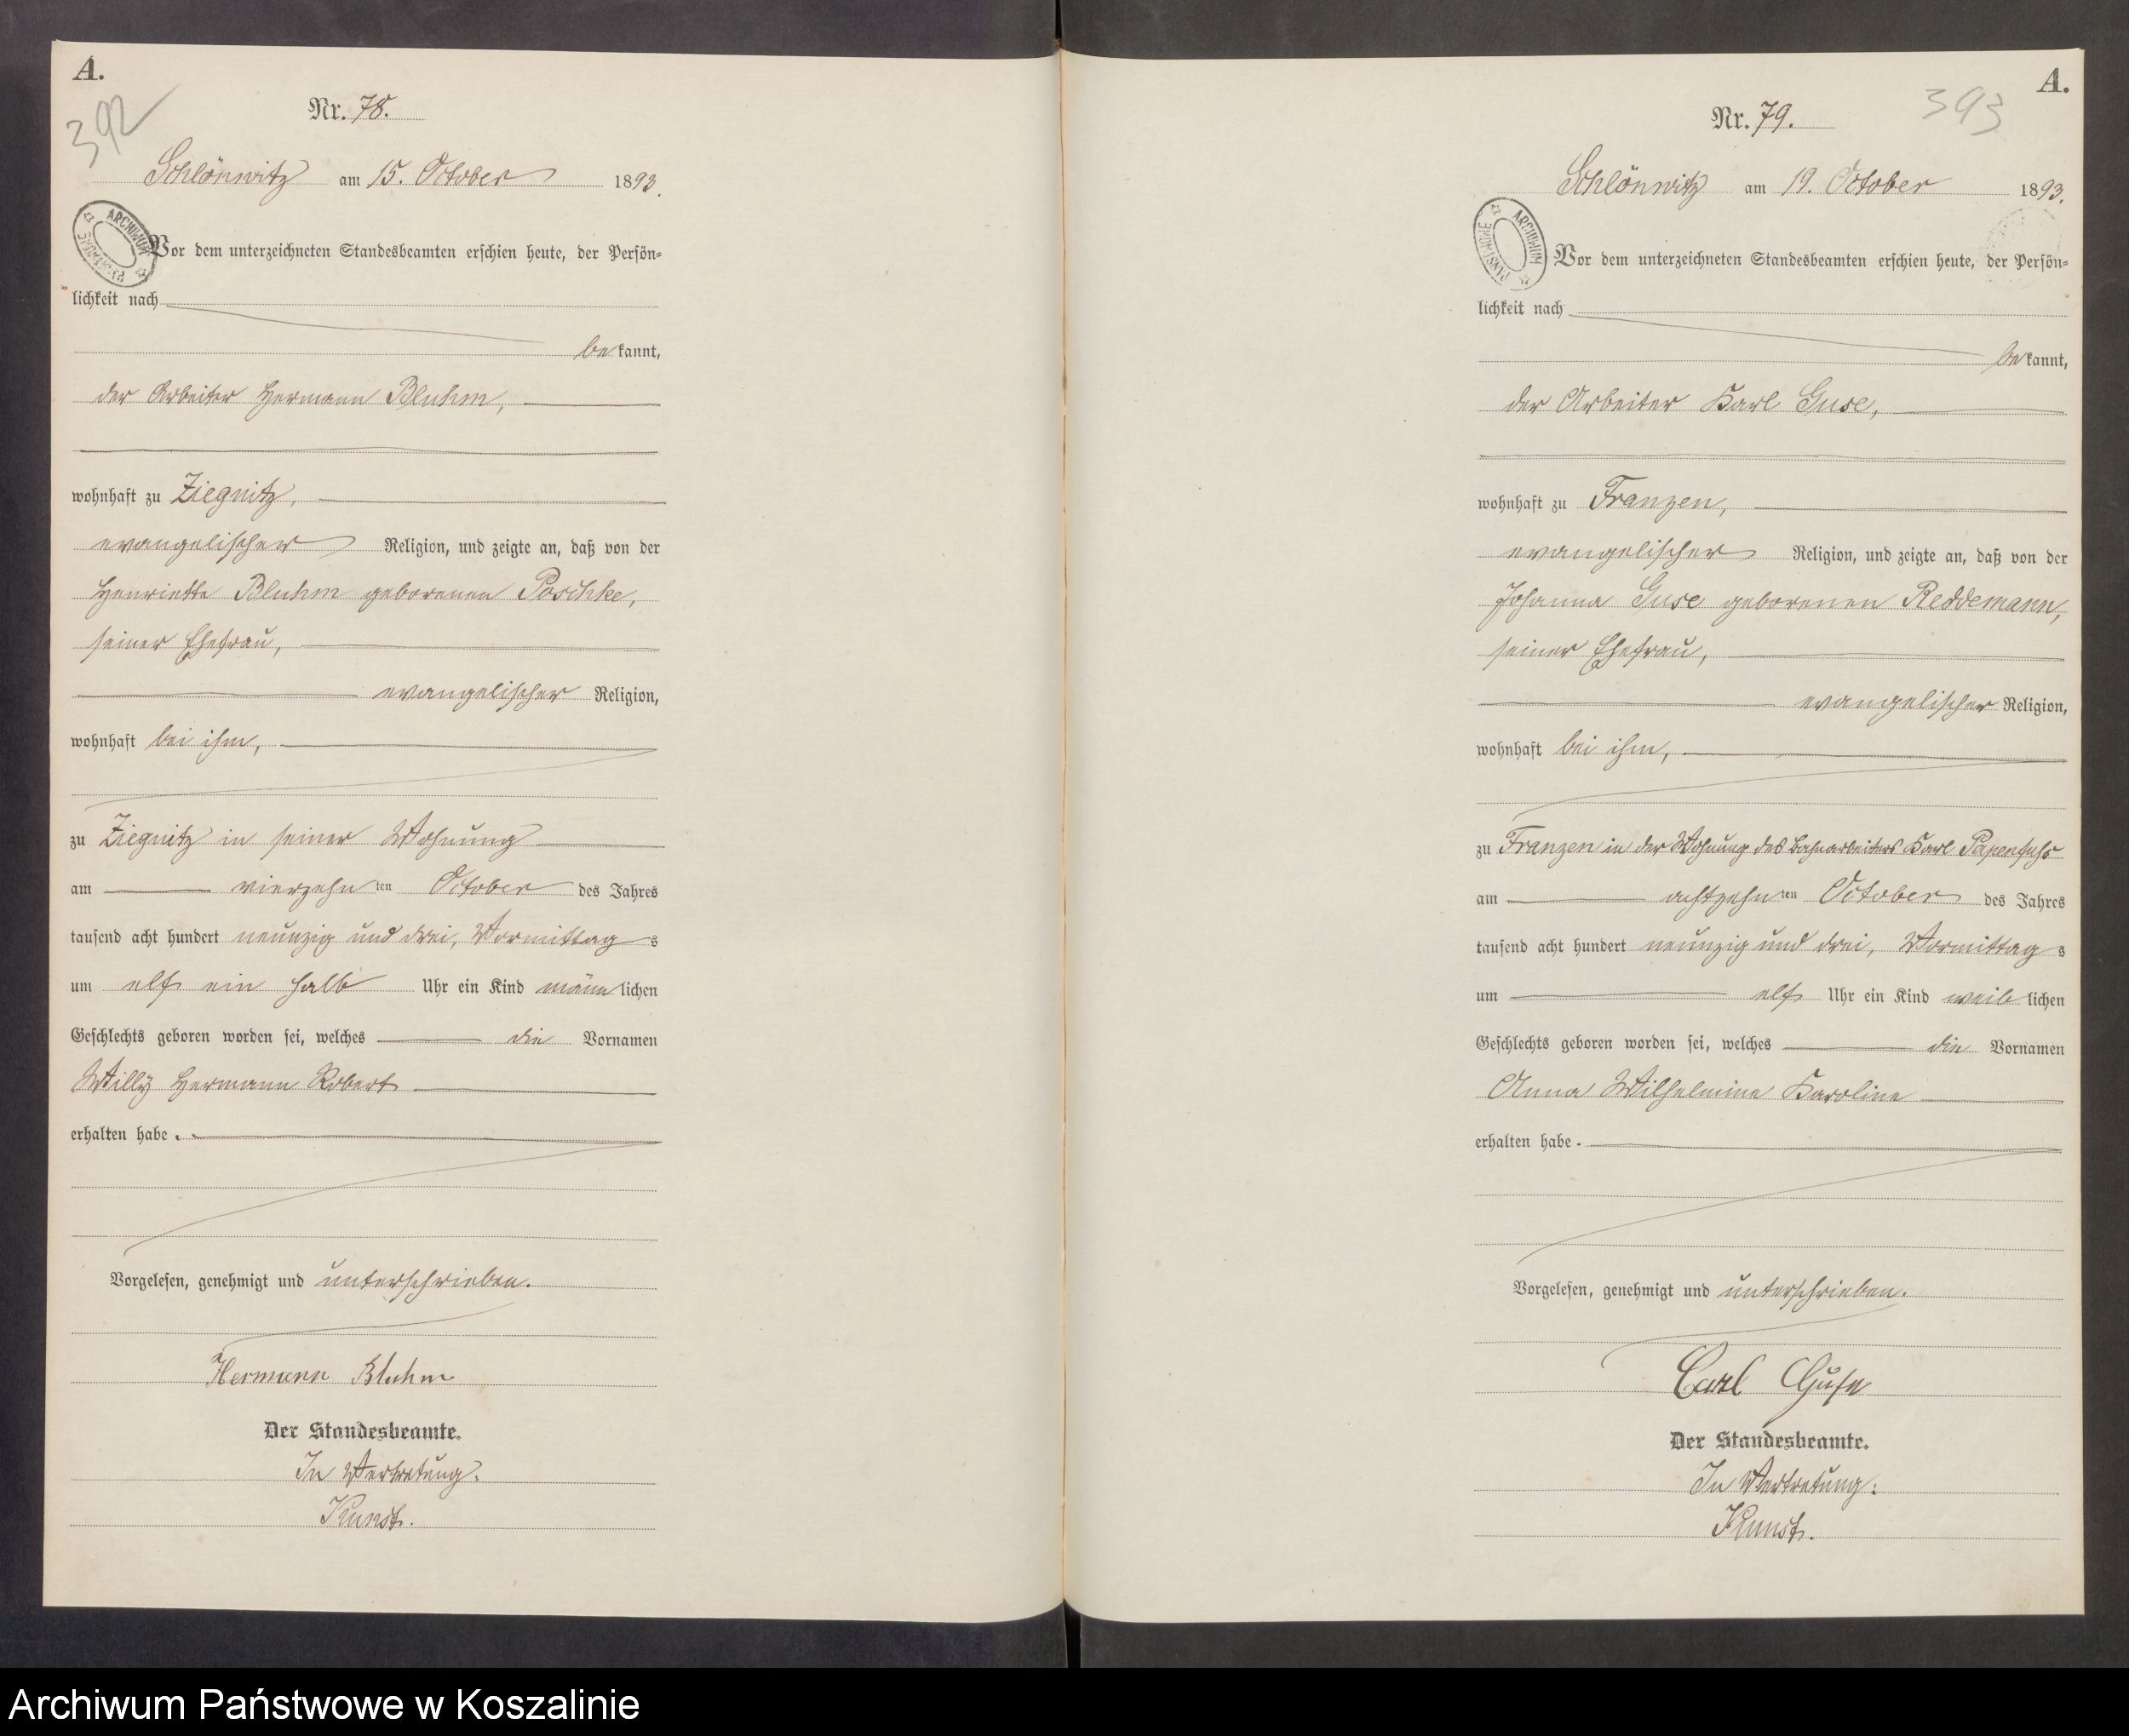 A.
392
Nr. 78.
Schlönwitz am 15. October 1893.
Vor dem unterzeichneten Standesbeamten erschien heute, der Persön-
lichkeit nach
bekannt,
der Arbeiter Hermann Bluhm,
wohnhaft zu Ziegnitz,
evangelischer Religion, und zeigte an, daß von der
Henriette Bluhm geborenen Poschke,
seiner Ehefrau,
evangelischer Religion,
wohnhaft bei ihm,
zu Ziegnitz in seiner Wohnung
am vierzehnten October des Jahres
tausend acht hundert neunzig und drei, Vormittags
um elf ein halb Uhr ein Kind männlichen
Geschlechts geboren worden sei, welches die Vornamen
Willy Hermann Robert
erhalten habe.
Vorgelesen, genehmigt und unterschrieben.
Hermann Bluhm
Der Standesbeamte.
In Vertretung:
Kunst.
ARCHIWUM
A.
393
Nr. 79.
Schlönwitz am 19. October 1893.
Vor dem unterzeichneten Standesbeamten erschien heute, der Persön-
lichkeit nach
bekannt,
der Arbeiter Karl Guse,
wohnhaft zu Franzen,
evangelischer Religion, und zeigte an, daß von der
Johanna Guse geborenen Reddemann,
seiner Ehefrau,
evangelischer Religion,
wohnhaft bei ihm,
zu Franzen in der Wohnung des Bahnarbeiters Karl Papenfuhs
am achtzehnten October des Jahres
tausend acht hundert neunzig und drei, Vormittags
um elf Uhr ein Kind weiblichen
Geschlechts geboren worden sei, welches die Vornamen
Anna Wilhelmine Karoline
erhalten habe.
Vorgelesen, genehmigt und unterschrieben.
Carl Guse
Der Standesbeamte.
In Vertretung:
Kunst.
ARCHIWUM
Archiwum Państwowe w Koszalinie